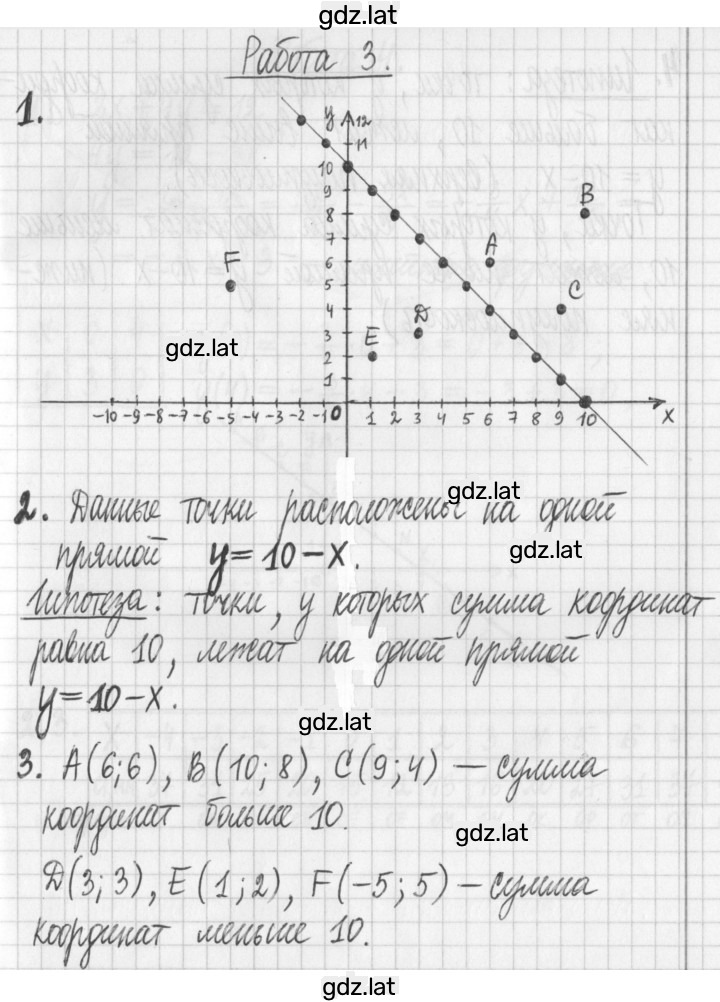 gdz.lat
Работа 3.
1.
y 12
11
10
9
8
B
7
A
6
F
5
C
4
D
3
gdz.lat
E
2
1
-10 -9 -8 -7 -6 -5 -4 -3 -2 -1 0 1 2 3 4 5 6 7 8 9 10 x
gdz.lat
2. Данные точки расположены на одной
прямой y = 10 - x.
gdz.lat
Гипотеза: точки, у которых сумма координат
равна 10, лежат на одной прямой
y = 10 - x.
gdz.lat
3. A(6;6), B(10;8), C(9;4) — сумма
координат больше 10.
gdz.lat
D(3;3), E(1;2), F(-5;5) — сумма
координат меньше 10.
gdz.lat